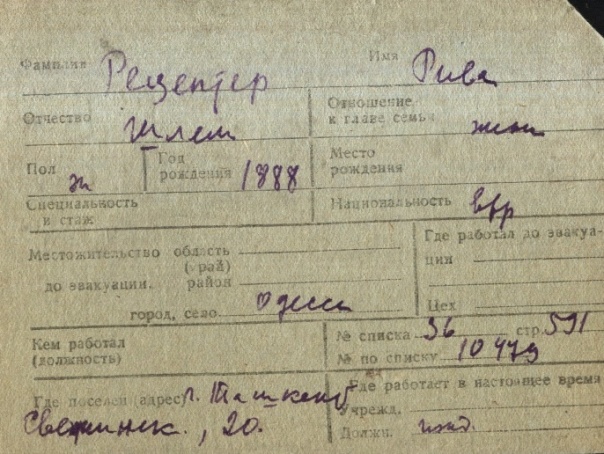 Фамилия Рецептер Имя Рива
Отчество Шлем Отношение к главе семьи жена
Пол ж Год рождения 1888 Место рождения
Специальность и стаж Национальность евр
Местожительство область (край) Где работал до эвакуации
до эвакуации. район
город, село. Одесса Цех
Кем работал (должность) № списка 36 стр. 591
№ по списку 10479
Где поселен (адрес) г. Ташкент Где работает в настоящее время
20. Учрежд.
Должн. ижд.